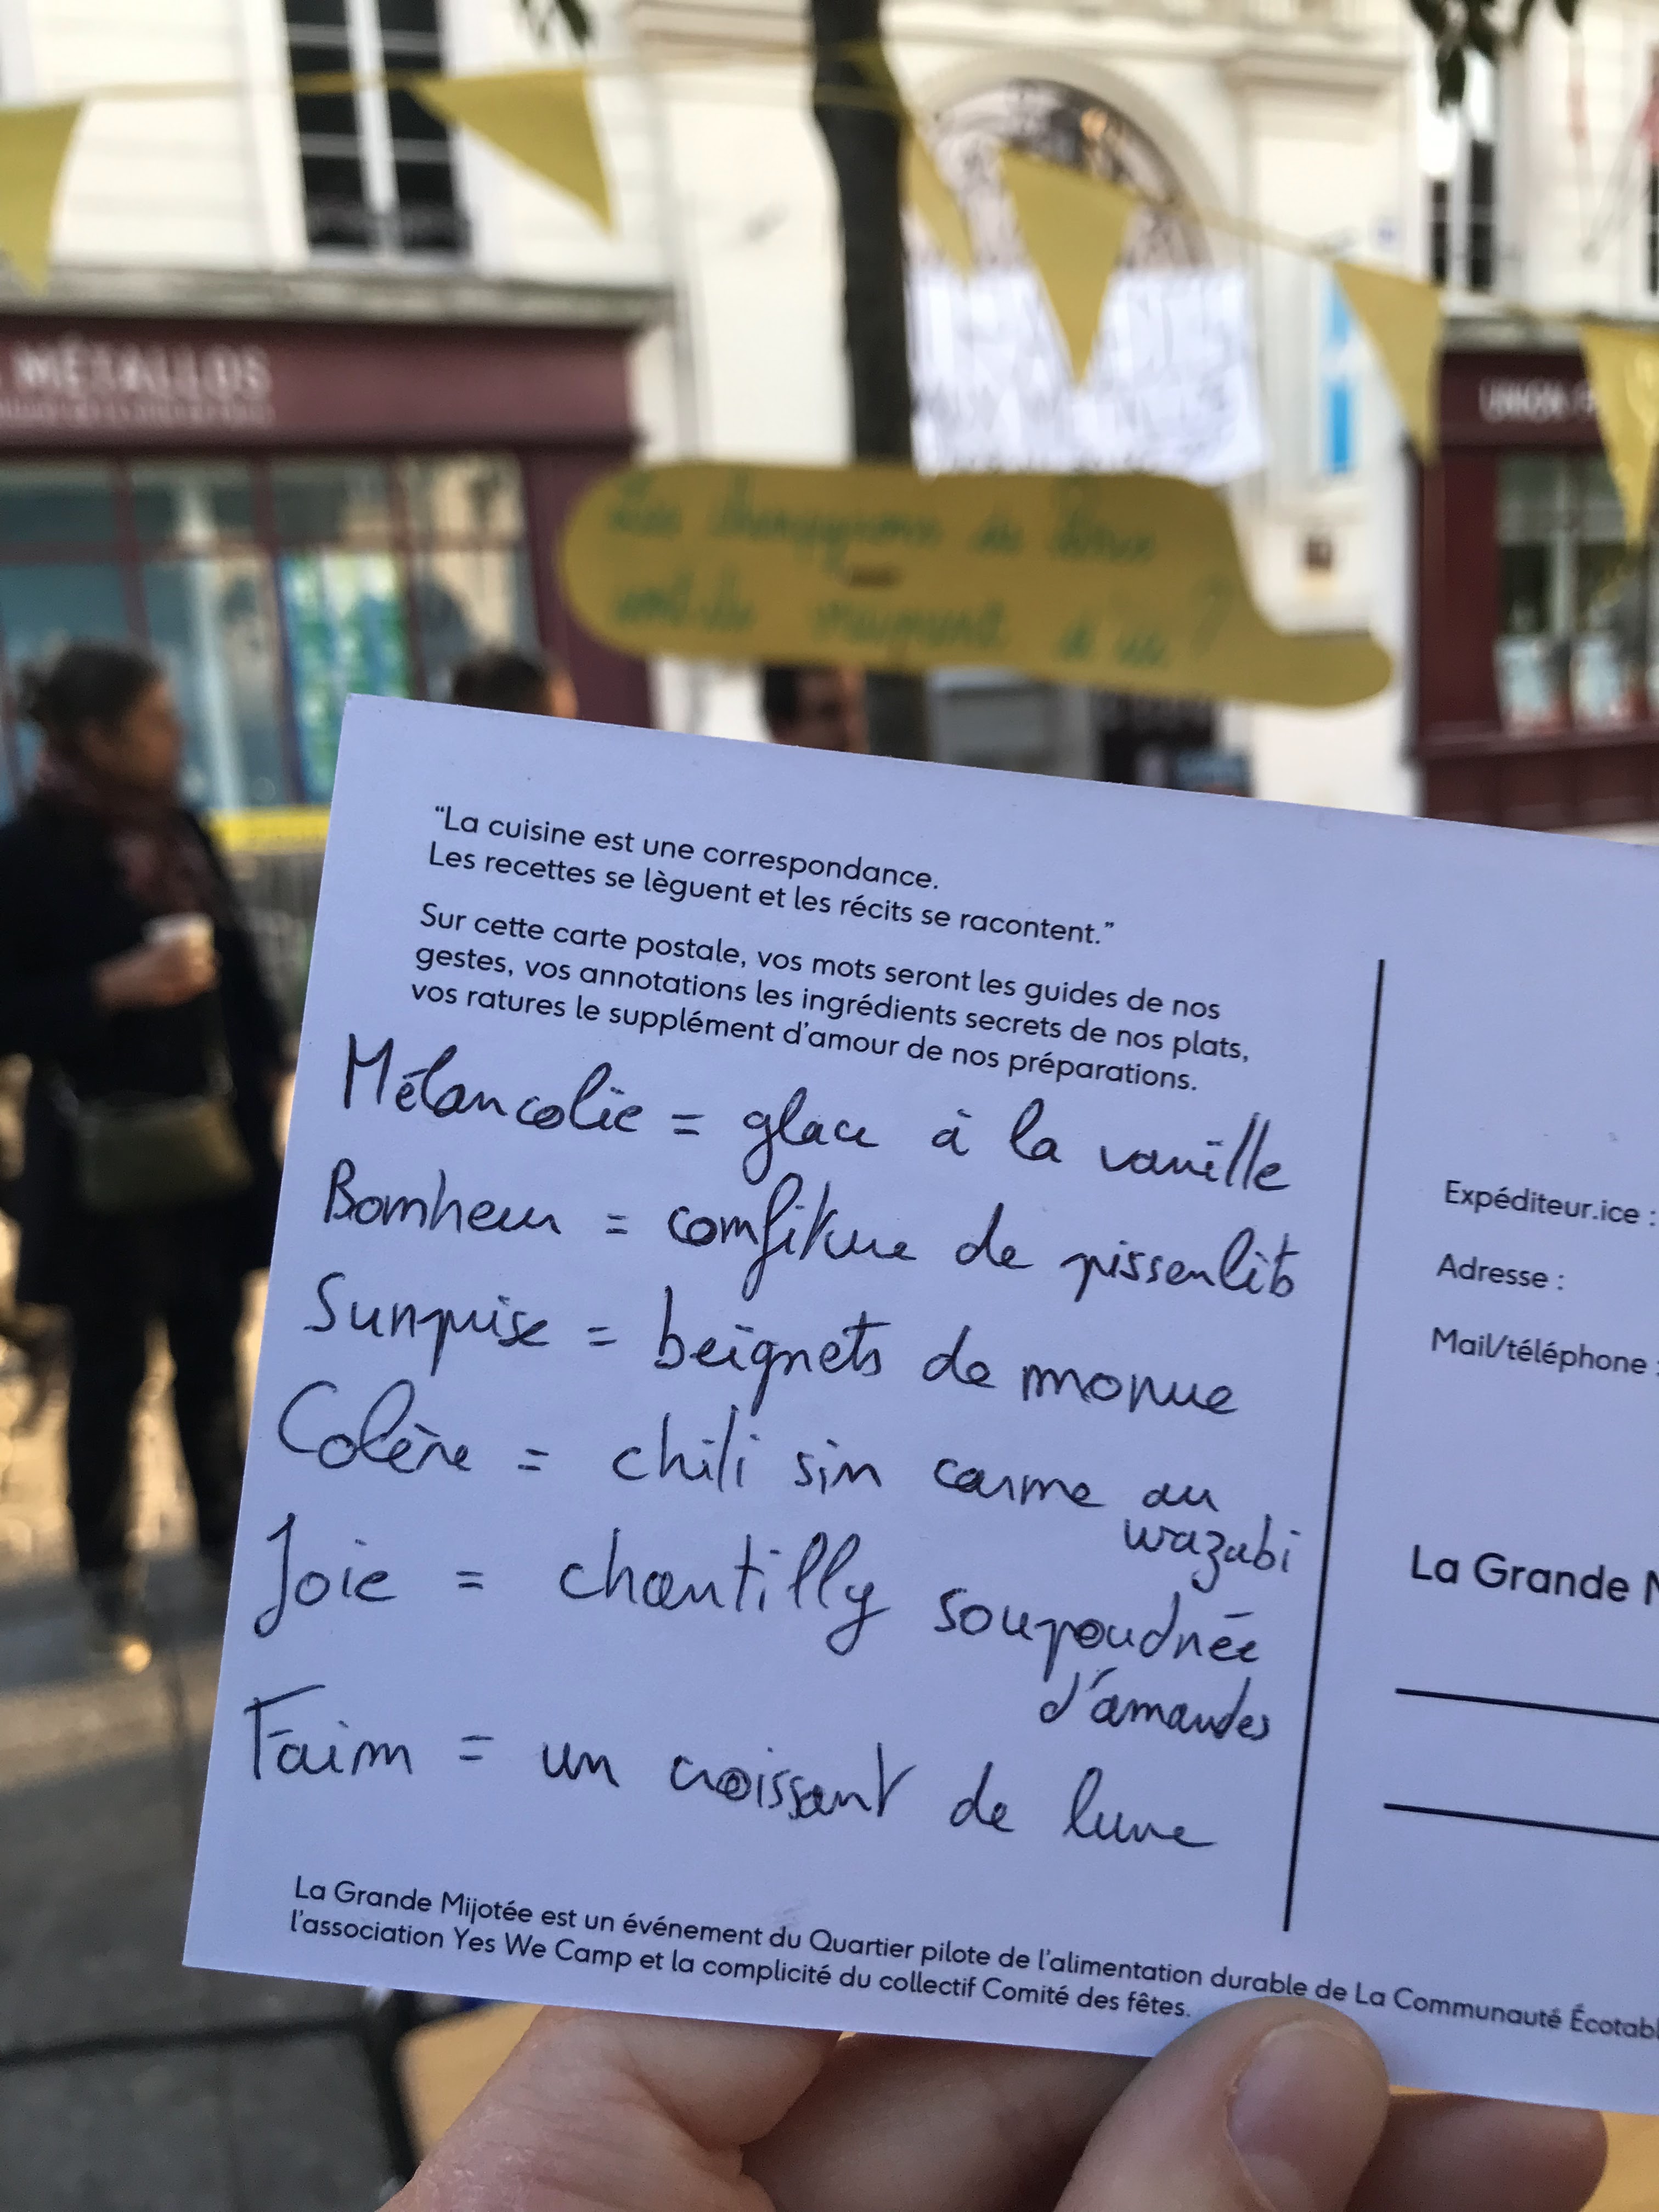 MÉTALLOS
UNION
Les champignons de Paris
sont-ils vraiment d'ici ?
“La cuisine est une correspondance.
Les recettes se lèguent et les récits se racontent.”
Sur cette carte postale, vos mots seront les guides de nos
gestes, vos annotations les ingrédients secrets de nos plats,
vos ratures le supplément d'amour de nos préparations.
Mélancolie = glace à la vanille
Bonheur = confiture de pissenlits
Surprise = beignets de morue
Colère = chili sin carne au
wazabi
Joie = chantilly soupoudrée
d'amandes
Faim = un croissant de lune
La Grande Mijotée est un événement du Quartier pilote de l'alimentation durable de La Communauté Écotabl
l'association Yes We Camp et la complicité du collectif Comité des fêtes.
Expéditeur.ice :
Adresse :
Mail/téléphone :
La Grande M